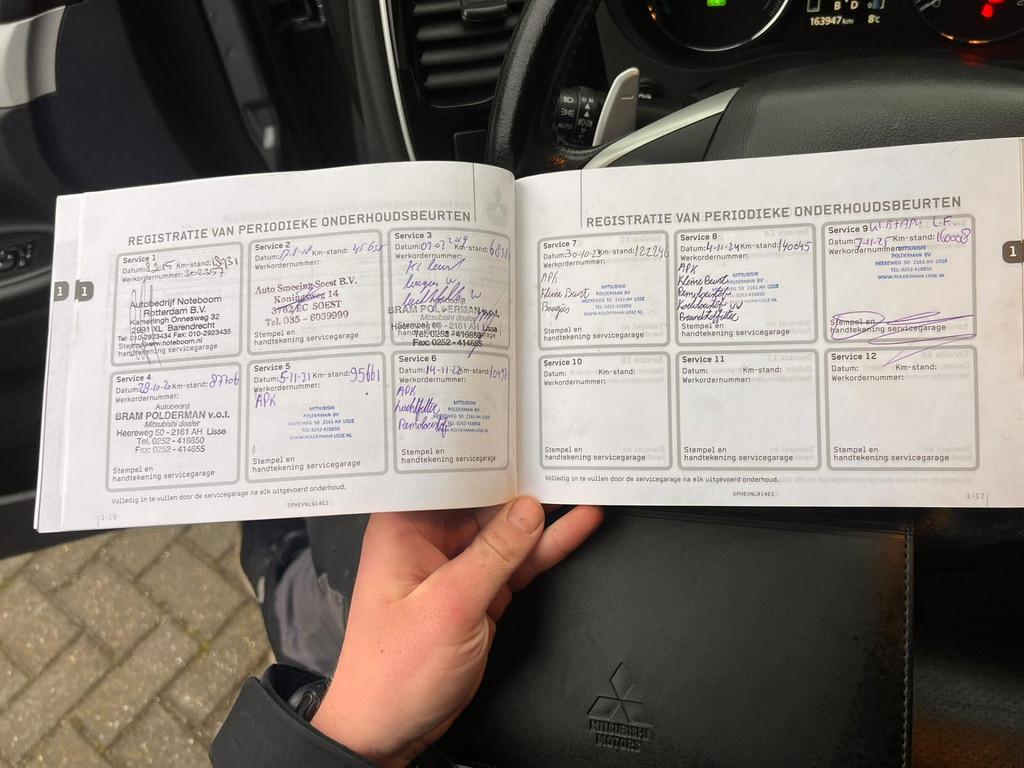 B D
163947 km 8°C
AUTO
REGISTRATIE VAN PERIODIEKE ONDERHOUDSBEURTEN
Service 1
Datum: Km-stand:
Werkordernummer: 302357
Autobedrijf Noteboom
Rotterdam B.V.
Kamerlingh Onnesweg 32
2991 XL Barendrecht
Tel: 010-2923434 Fax: 010-2923435
www.noteboom.nl
handtekening servicegarage
Service 2
Datum: Km-stand:
Werkordernummer:
Auto Smeeing Soest B.V.
Koningsweg 14
3762 EC SOEST
Tel. 035 - 6039999
Stempel en
handtekening servicegarage
Service 3
Datum: Km-stand:
Werkordernummer:
BRAM POLDERMAN v.o.f.
Mitsubishi dealer
Heereweg 50 - 2161 AH Lisse
Tel. 0252 - 418850
Fax: 0252 - 414655
Service 4
Datum: 28-10-20 Km-stand: 87706
Werkordernummer:
Autobedrijf
BRAM POLDERMAN v.o.f.
Mitsubishi dealer
Heereweg 50 - 2161 AH Lisse
Tel. 0252 - 418850
Fax: 0252 - 414655
Stempel en
handtekening servicegarage
Service 5
Datum: 5-11-21 Km-stand: 95661
Werkordernummer:
APK
MITSUBISHI
POLDERMAN BV
HEEREWEG 50 2161 AH LISSE
TEL: 0252-418850
WWW.POLDERMAN-LISSE.NL
Stempel en
handtekening servicegarage
Service 6
Datum: 14-11-22 Km-stand:
Werkordernummer:
APK
Luchtfilter
Remvloeistof
MITSUBISHI
POLDERMAN BV
HEEREWEG 50 2161 AH LISSE
TEL: 0252-418850
WWW.POLDERMAN-LISSE.NL
Stempel en
handtekening servicegarage
Volledig in te vullen door de servicegarage na elk uitgevoerd onderhoud.
SPHEVNL914E1
1-16
1
1
REGISTRATIE VAN PERIODIEKE ONDERHOUDSBEURTEN
Service 7
Datum: 30-10-23 Km-stand: 122246
Werkordernummer:
APK
Kleine Beurt
Bougies
MITSUBISHI
POLDERMAN BV
HEEREWEG 50 2161 AH LISSE
TEL: 0252-418850
WWW.POLDERMAN-LISSE.NL
Stempel en
handtekening servicegarage
Service 8
Datum: 4-11-24 Km-stand: 140045
Werkordernummer:
APK
Kleine Beurt
Remvloeistof
Koelvloeistof VV
Brandstoffilter
MITSUBISHI
POLDERMAN BV
HEEREWEG 50 2161 AH LISSE
TEL: 0252-418850
WWW.POLDERMAN-LISSE.NL
handtekening servicegarage
Service 9
Datum: 7-11-25 Km-stand: 160008
Werkordernummer:
MITSUBISHI
POLDERMAN BV
HEEREWEG 50 2161 AH LISSE
TEL: 0252-418850
WWW.POLDERMAN-LISSE.NL
Stempel en
handtekening servicegarage
Service 10
Datum: Km-stand:
Werkordernummer:
Stempel en
handtekening servicegarage
Service 11
Datum: Km-stand:
Werkordernummer:
Stempel en
handtekening servicegarage
Service 12
Datum: Km-stand:
Werkordernummer:
Stempel en
handtekening servicegarage
Volledig in te vullen door de servicegarage na elk uitgevoerd onderhoud.
SPHEVNL914E1
1-17
1
MITSUBISHI
MOTORS